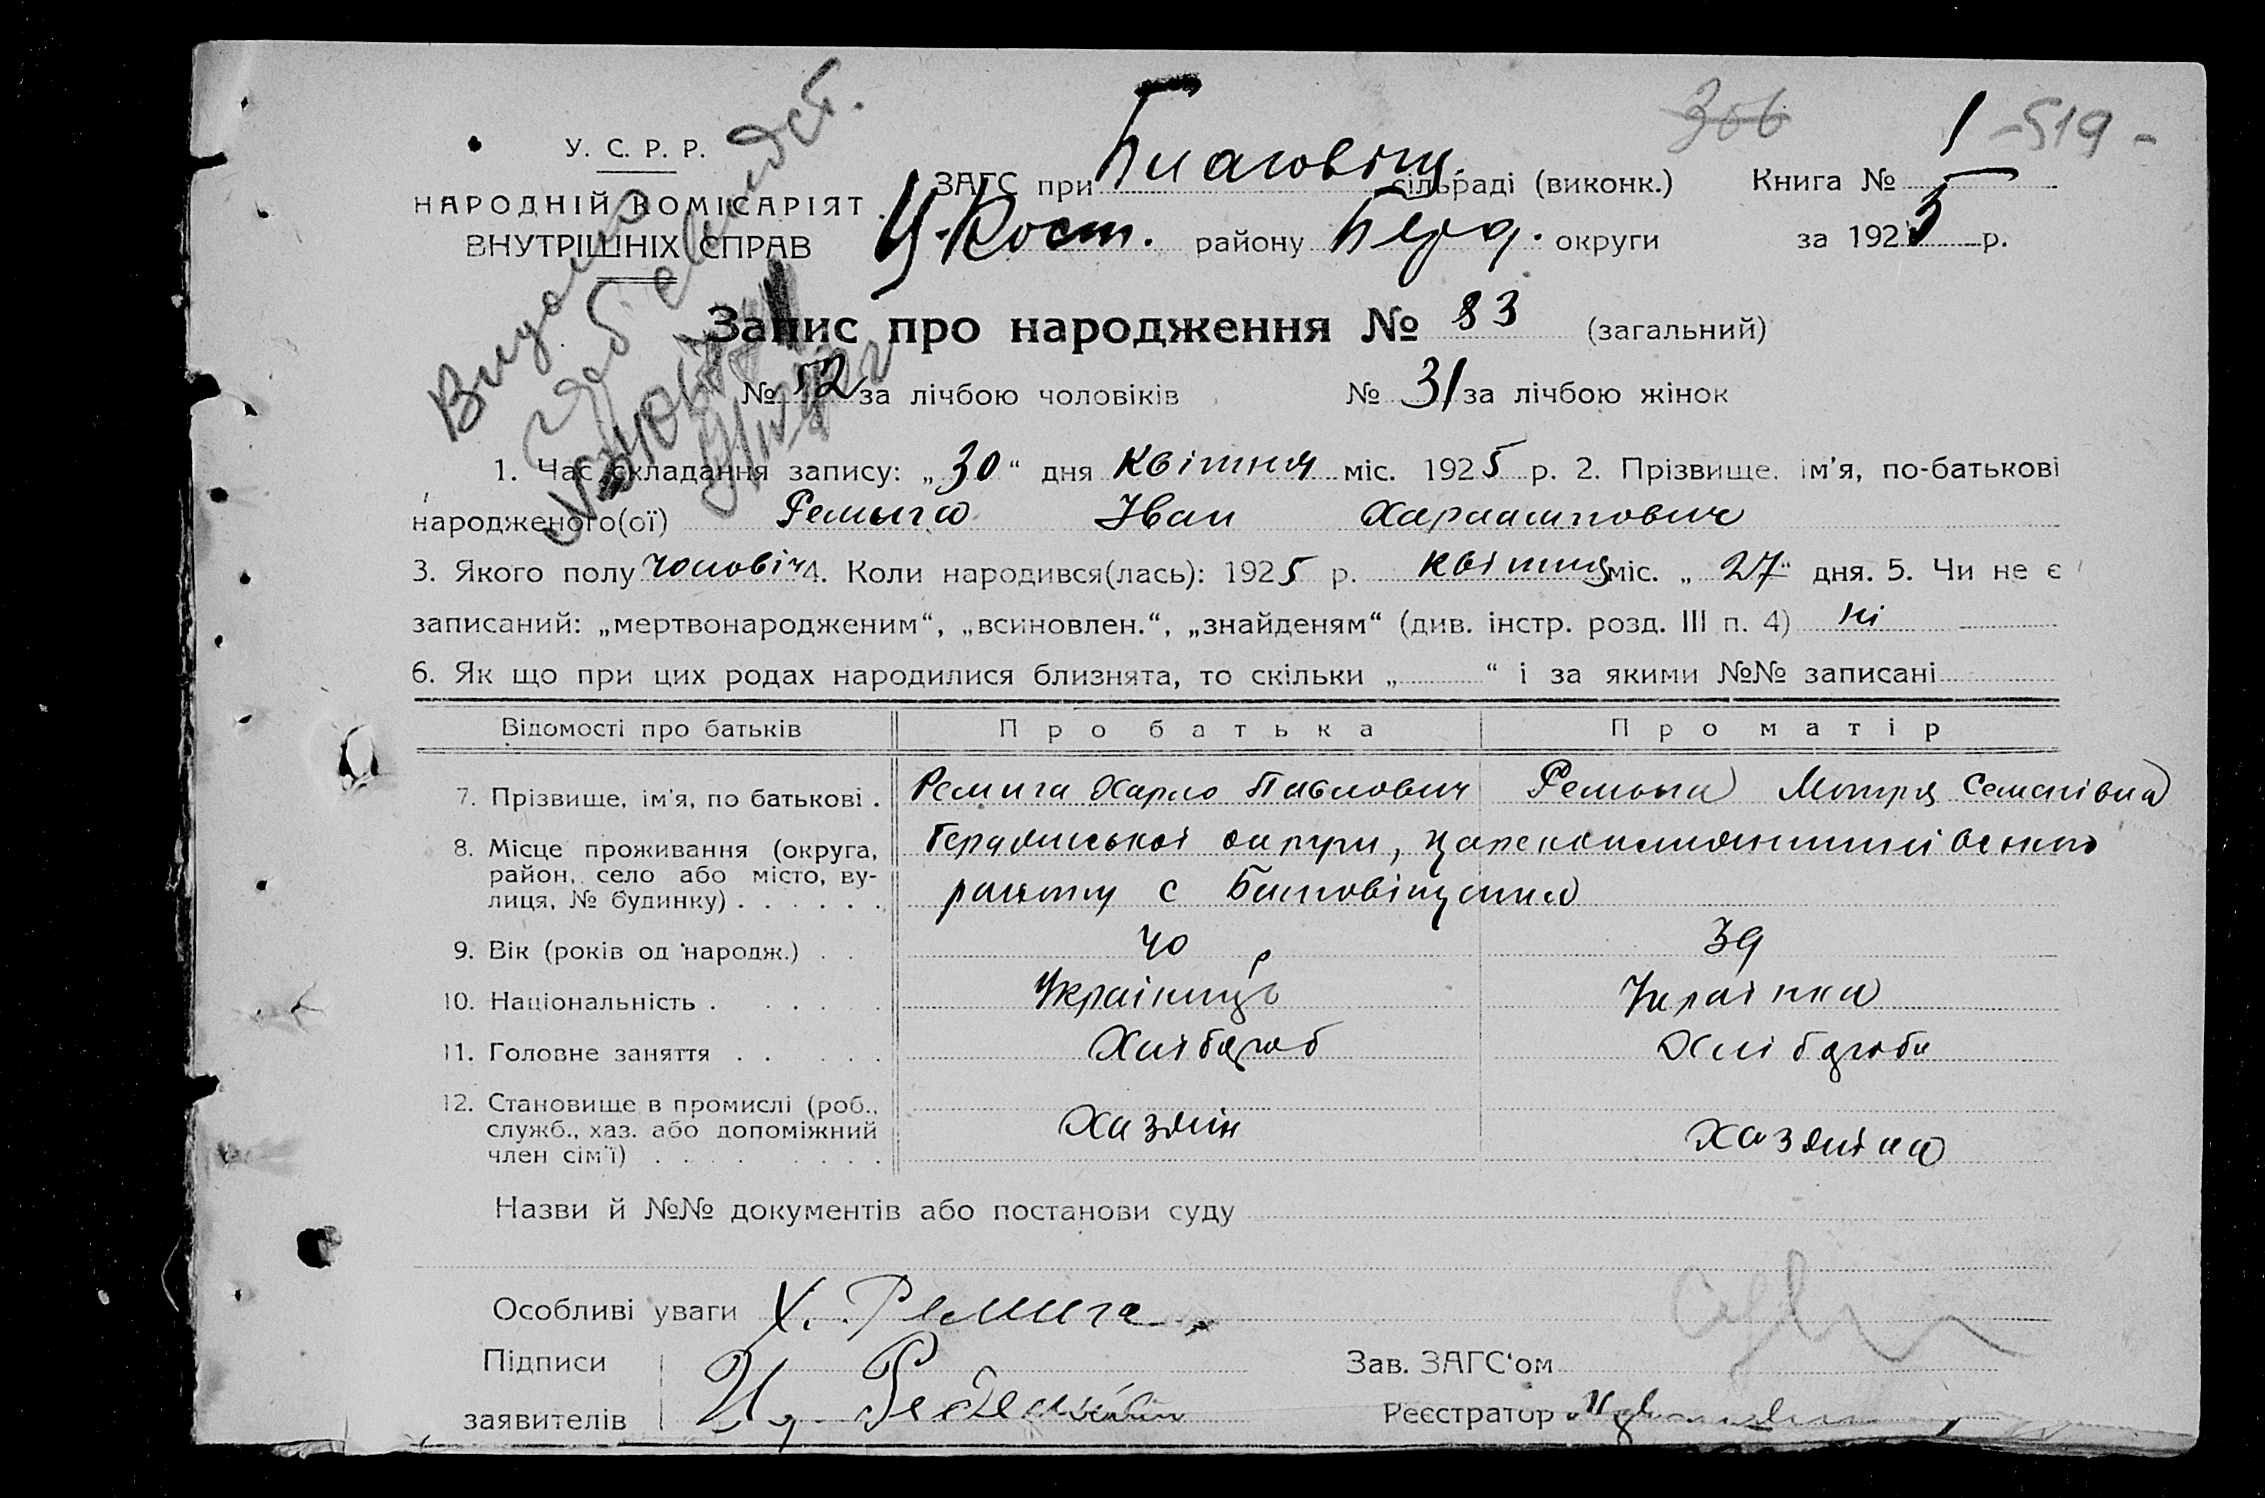 306
1 -519-
У. С. Р. Р.
НАРОДНІЙ КОМІСАРІЯТ
ВНУТРІШНІХ СПРАВ
ЗАГС при Благовіщ. сільраді (виконк.) Книга № 1
Ц-Кост. району Берд. округи за 1925 р.
Видано
Запис про народження № 83 (загальний)
№ 52 за лічбою чоловіків № 31 за лічбою жінок
1. Час складання запису: „30“ дня квітня міс. 1925 р. 2. Прізвище, ім'я, по-батькові
народженого(ої) Ремыга Іван Харлампович
3. Якого полу чоловіч 4. Коли народився(лась): 1925 р. квітня міс. „27“ дня. 5. Чи не є
записаний: „мертвонародженим“, „всиновлен.“, „знайденям“ (див. інстр. розд. III п. 4) ні
6. Як що при цих родах народилися близнята, то скільки „ “ і за якими №№ записані
Відомості про батьків Про батька Про матір
7. Прізвище, ім'я, по батькові . Ремига Харло Павлович Ремыга Мотря Семенівна
8. Місце проживання (округа, район, село або місто, вулиця, № будинку) Бердянської округи, Царекостянтинівського
району с Благовіщенка
9. Вік (років од народж.) 40 39
10. Національність Українець Українка
11. Головне заняття Хлібороб Хлібороби
12. Становище в промислі (роб., служб., хаз. або допоміжний член сім'ї) Хазяїн Хазяїка
Назви й №№ документів або постанови суду
Особливі уваги Х. Ремига
Підписи Зав. ЗАГС'ом
заявителів Реєстратор